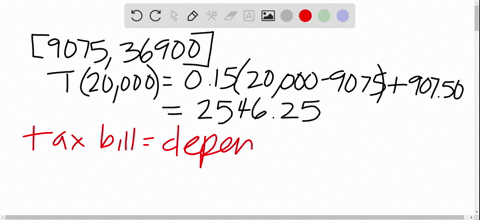 [9075, 36900]
T(20,000) = 0.15(20,000-9075)+907.50
= 2546.25
tax bill = depen